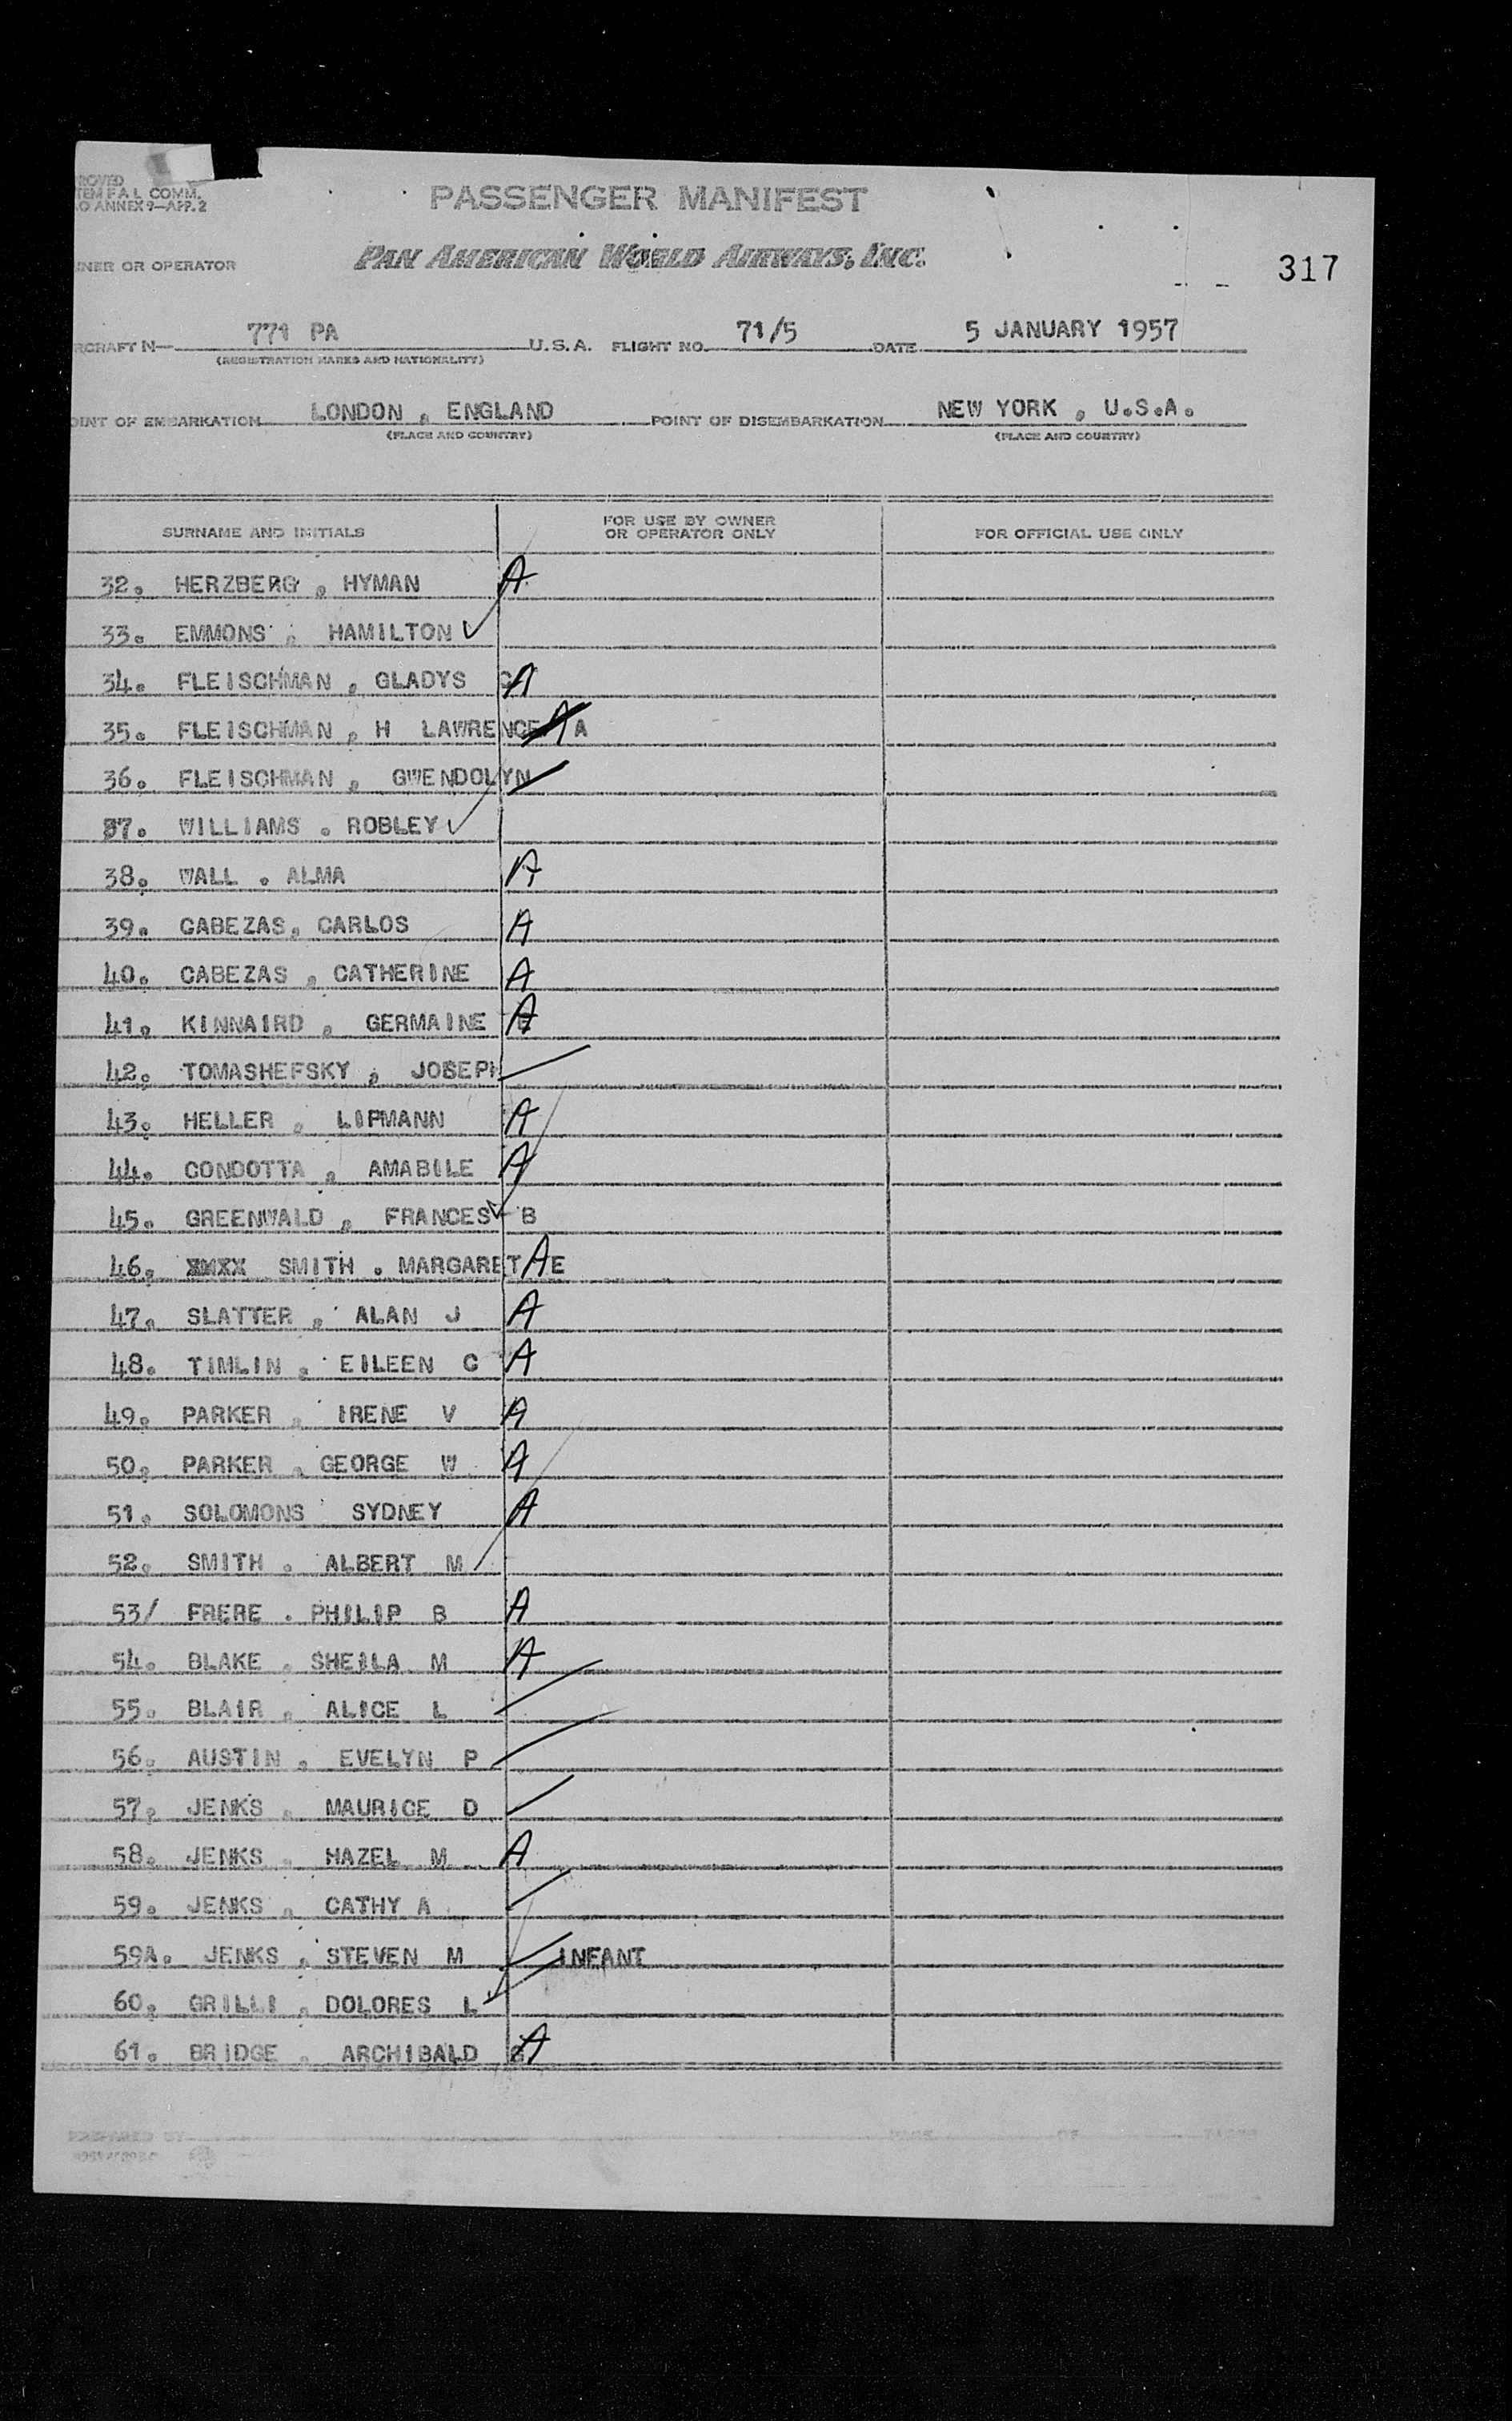 ROVED
TEM F.A.L. COMM.
O ANNEX 9—APP. 2
PASSENGER MANIFEST
NER OR OPERATOR
PAN AMERICAN WORLD AIRWAYS, INC.
317
RCRAFT N— 771 PA U.S.A. FLIGHT NO. 71/5 DATE 5 JANUARY 1957
(REGISTRATION MARKS AND NATIONALITY)
OINT OF EMBARKATION LONDON , ENGLAND POINT OF DISEMBARKATION NEW YORK , U.S.A.
(PLACE AND COUNTRY) (PLACE AND COUNTRY)
SURNAME AND INITIALS FOR USE BY OWNER OR OPERATOR ONLY FOR OFFICIAL USE ONLY
32. HERZBERG , HYMAN A
33. EMMONS , HAMILTON ✓
34. FLEISCHMAN , GLADYS A
35. FLEISCHMAN , H LAWRENCE A A
36. FLEISCHMAN , GWENDOLYN
37. WILLIAMS . ROBLEY ✓
38. WALL . ALMA A
39. CABEZAS, CARLOS A
40. CABEZAS , CATHERINE A
41. KINNAIRD , GERMAINE A
42. TOMASHEFSKY , JOSEPH
43. HELLER , LIPMANN A
44. CONDOTTA , AMABILE A
45. GREENWALD , FRANCES ✓ B
46. XMXX SMITH . MARGARET A E
47. SLATTER , ALAN J A
48. TIMLIN , EILEEN C A
49. PARKER , IRENE V A
50. PARKER , GEORGE W A
51. SOLOMONS SYDNEY A
52. SMITH , ALBERT M
53/ FRERE . PHILIP B A
54. BLAKE , SHEILA M A
55. BLAIR , ALICE L
56. AUSTIN , EVELYN P
57. JENKS , MAURICE D
58. JENKS , HAZEL M A
59. JENKS , CATHY A
59A. JENKS , STEVEN M INFANT
60. GRILLI , DOLORES L ✓
61. BRIDGE , ARCHIBALD A
PREPARED BY